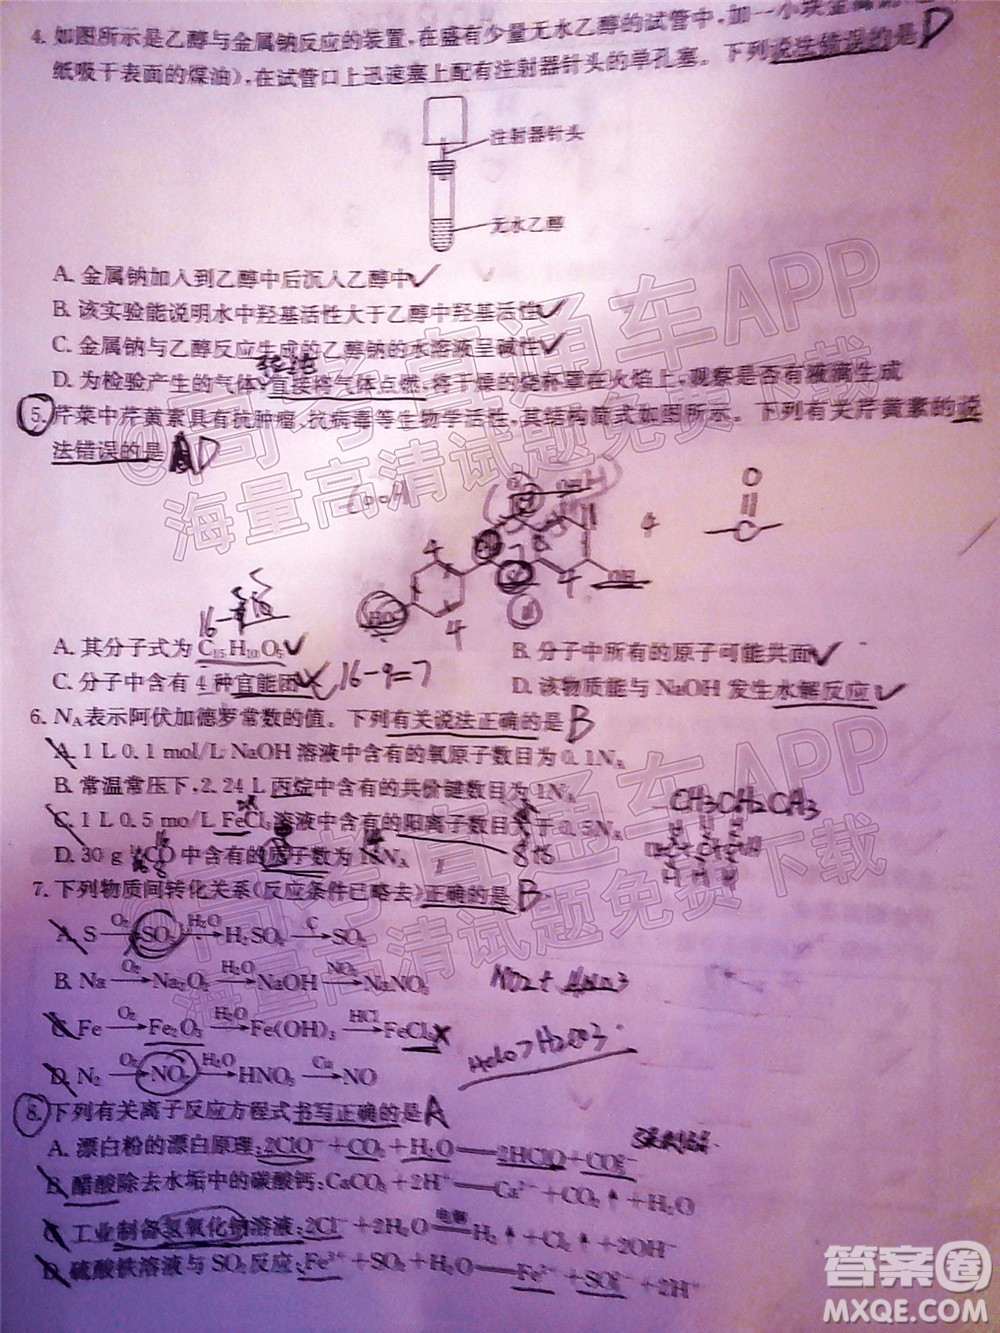 4. 如图所示是乙醇与金属钠反应的装置,在盛有少量无水乙醇的试管中,加一小块金属 D
纸吸干表面的煤油),在试管口上迅速塞上配有注射器针头的单孔塞。下列说法错误的是
注射器针头
无水乙醇
A. 金属钠加入到乙醇中后沉入乙醇中 ✓
B. 该实验能说明水中羟基活性大于乙醇中羟基活性 ✓
C. 金属钠与乙醇反应生成的乙醇钠的水溶液呈碱性 ✓
D. 为检验产生的气体,直接将气体点燃,将干燥的烧杯罩在火焰上,观察是否有液滴生成
5. 芹菜中芹黄素具有抗肿瘤、抗病毒等生物学活性,其结构简式如图所示。下列有关芹黄素的说
法错误的是 D
COOH
O
4
4
OH
HO
4
4
16
A. 其分子式为 C₁₅H₁₀O₅ ✓
B. 分子中所有的原子可能共面 ✓
C. 分子中含有 4 种官能团 16-9=7
D. 该物质能与 NaOH 发生水解反应 ✓
6. Nᴀ表示阿伏加德罗常数的值。下列有关说法正确的是 B
A. 1 L 0.1 mol/L NaOH 溶液中含有的氧原子数目为 0.1Nᴀ
B. 常温常压下,2.24 L 丙烷中含有的共价键数目为 1Nᴀ
CH3CH2CH3
C. 1 L 0.5 mo/L FeCl₃溶液中含有的阳离子数目大于 0.5Nᴀ
D. 30 g CO 中含有的质子数为 15Nᴀ
7. 下列物质间转化关系(反应条件已略去)正确的是 B
A. S —O₂→ SO₃ —H₂O→ H₂SO₄ —C→ SO₂
B. Na —O₂→ Na₂O₂ —H₂O→ NaOH —NO₂→ NaNO₃
C. Fe —O₂→ Fe₂O₃ —H₂O→ Fe(OH)₃ —HCl→ FeCl₃
D. N₂ —O₂→ NO₂ —H₂O→ HNO₃ —Cu→ NO
HClO>H2CO3
8. 下列有关离子反应方程式书写正确的是 A
A. 漂白粉的漂白原理:2ClO⁻+CO₂+H₂O══2HClO+CO₃²⁻
B. 醋酸除去水垢中的碳酸钙:CaCO₃+2H⁺══Ca²⁺+CO₂↑+H₂O
C. 工业制备氢氧化钠溶液:2Cl⁻+2H₂O ══电解══ H₂↑+Cl₂↑+2OH⁻
D. 硫酸铁溶液与 SO₂反应:Fe³⁺+SO₂+H₂O══Fe²⁺+SO₄²⁻+2H⁺
@高考直通车APP
海量高清试题免费下载
@高考直通车APP
海量高清试题免费下载
答案圈
MXQE.COM